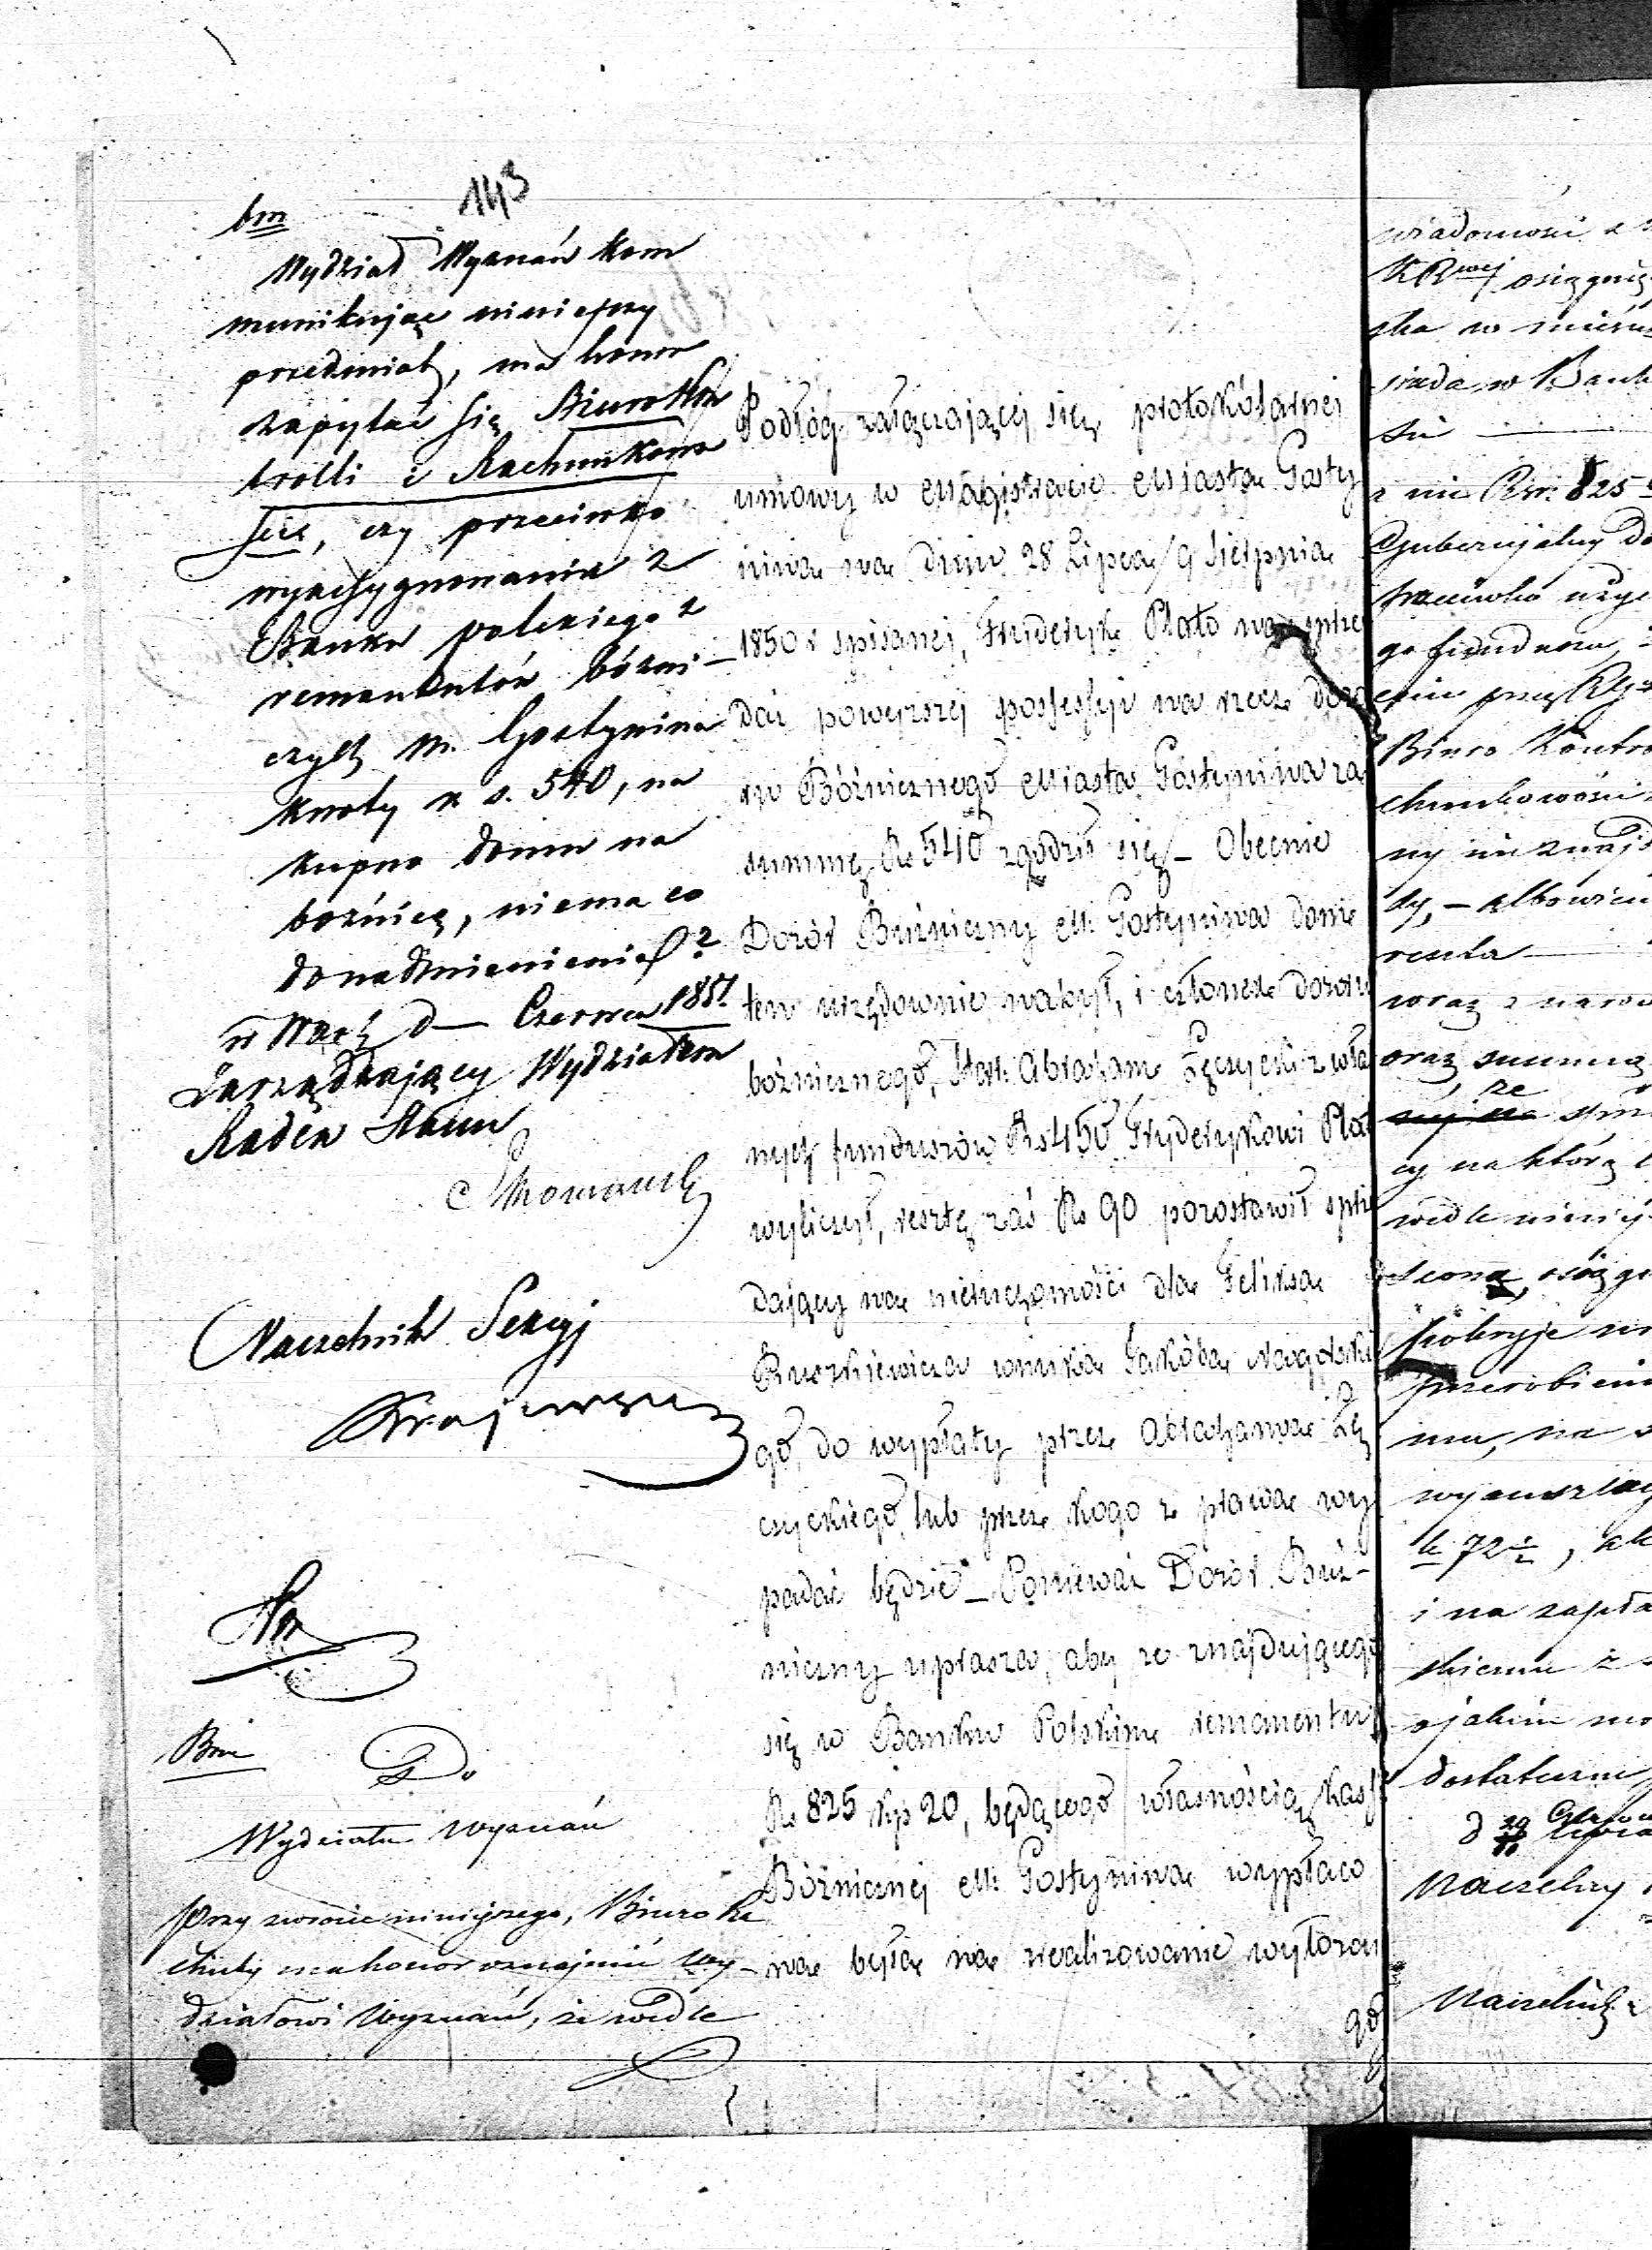 143
bm
Wydział Wyznań kom
munikując niniejszy
przedmiot, ma honor
zapytać się Biura Kon
trolli i Rachunkowo
ści, czy przeciwko
wyasygnowaniu z
Banku polskiego z
remanentów bóżni-
czych m. Gostynina
kwoty r s. 540, na
kupno domu na
bożnicę, niema co
do nadmienienia?
w Warsz d — Czerwca 1851.
Zarządzający Wydziałem
Radca Stanu
Naczelnik Sekcyj
Krajewski
Bm
Do
Wydziału Wyznań
przy zwrocie niniejszego, Biuro Ra
chuby ma honor oznajmić Wy-
działowi Wyznań, że wedle
Podług załączającej się protokólarnej
umowy w Magistracie Miasta Gosty
nina na dniu 28 Lipca/9 Sierpnia
1850 r spisanej, Fryderyk Plato na sprze
daż powyższej possessyi na rzecz dozo
ru Bóżnicznego Miasta Gostynina za
summę Rs 540 zgodził się – Obecnie
Dozór Bużniczny M. Gostynina dom
ten urzędownie nabył, i członek dozoru
bożnicznego, Star. Abraham Łęczycki z włas
nych funduszów Rs 450 Frydrykowi Plato
wyliczył, resztę zaś Rs 90 pozostawił sprze
dający na nieruchomości dla Felixa
Ruszkiewicza wnuka Jakóba Nagórskie
go, do wypłaty przez Abrahama Łę
czyckiego, lub przez kogo z prawa wy
padać będzie – Ponieważ Dozór Buż-
niczny uprasza, aby ze znajdującego
się w Banku Polskim remanentu
Rs 825 kp 20, będącego własnością kassy
Bóżnicznej M. Gostynina wypłaco
na była na zrealizowanie wyłożon
go
wiadomości z
KRwej osiągnię
ska w
siada w Bank
su
z nic Rsr. 825
Gubernjalny Do
przeciwko użyc
go funduszu,
Biuro Kontro
chunkowości
ny nie znajd
dy, – albowiem
reszta
wraz z
oraz summa
że
cy na którą
wedle niniej
pokryje
przerobieni
mu, na
k 72½, ale
i na zapła
skiemu z
o jakim
dostatecznie
Naczelny
Naczelnik